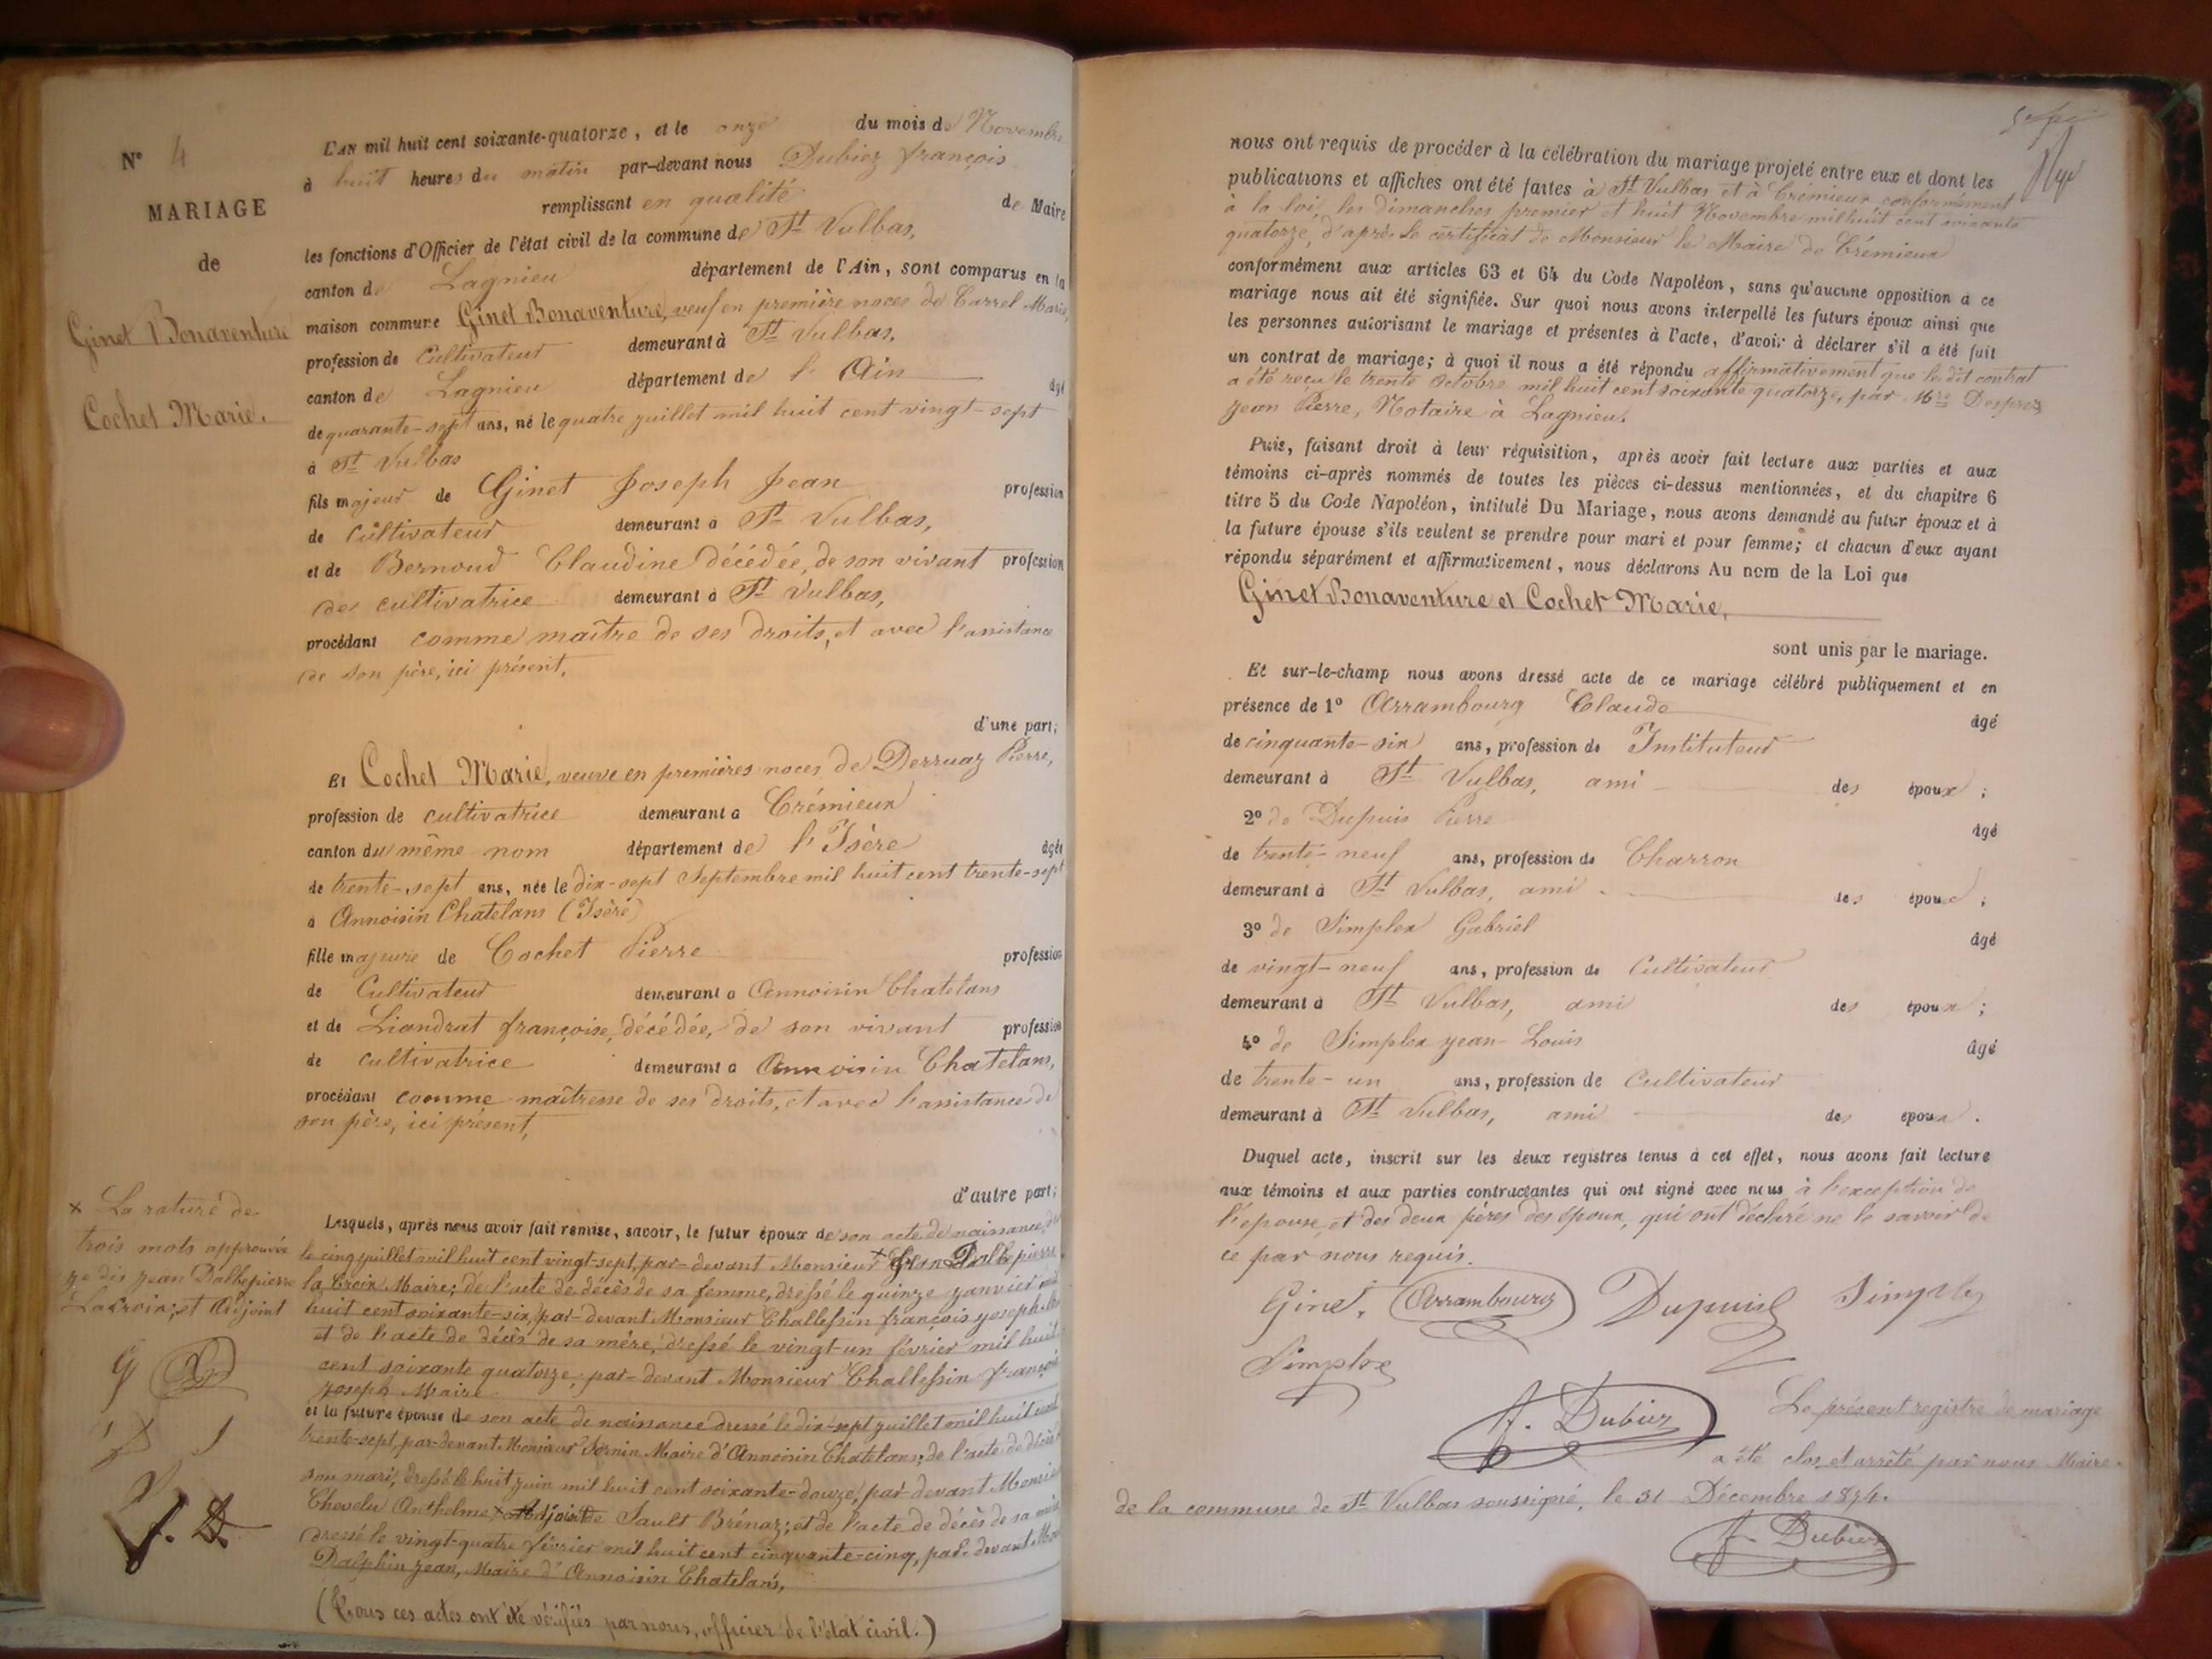 N° 4
MARIAGE
de
Ginet Bonaventure
Cochet Marie.
L'AN mil huit cent soixante-quatorze, et le onze du mois de Novembre
à huit heures du matin par-devant nous Dubiez françois
remplissant en qualité de Maire
les fonctions d'Officier de l'état civil de la commune de St Vulbas,
canton de Lagnieu département de l'Ain, sont comparus en la
maison commune Ginet Bonaventure, veuf en première noces de Carrel Marie,
profession de Cultivateur demeurant à St Vulbas,
canton de Lagnieu département de l'Ain âgé
de quarante-sept ans, né le quatre juillet mil huit cent vingt-sept
à St Vulbas
fils majeur de Ginet Joseph Jean profession
de Cultivateur demeurant à St Vulbas,
et de Bernoud Claudine décédée, de son vivant profession
de cultivatrice demeurant à St Vulbas,
procédant comme maître de ses droits, et avec l'assistance
de son père, ici présent,
d'une part;
Et Cochet Marie, veuve en premières noces de Derruaz Pierre,
profession de cultivatrice demeurant à Crémieux
canton du même nom département de l'Isère âgée
de trente-sept ans, née le dix-sept Septembre mil huit cent trente-sept
à Annoisin Chatelans (Isère)
fille majeure de Cochet Pierre profession
de Cultivateur demeurant à Annoisin Chatelans
et de Liandrat françoise, décédée, de son vivant profession
de cultivatrice demeurant à Annoisin Chatelans,
procédant comme maîtresse de ses droits, et avec l'assistance de
son père, ici présent,
d'autre part;
Lesquels, après nous avoir fait remise, savoir, le futur époux de son acte de naissance,
le cinq juillet mil huit cent vingt-sept, par-devant Monsieur + Jean Dalbepierre
la Croix Maire; de l'acte de décès de sa femme, dressé le quinze janvier mil
huit cent soixante-six, par-devant Monsieur Challessin françois joseph
et de l'acte de décès de sa mère, dressé le vingt-un février mil huit
cent soixante quatorze, par-devant Monsieur Challessin françois
joseph Maire
et la future épouse de son acte de naissance dressé le dix-sept juillet mil huit cent
trente-sept, par-devant Monsieur Sornin Maire d'Annoisin Chatelans; de l'acte de décès
son mari, dressé le huit juin mil huit cent soixante-douze, par-devant Monsieur
Chevelu Anthelme + Adjoint de Sault Brénaz; et de l'acte de décès de sa mère
dressé le vingt-quatre février mil huit cent cinquante-cinq, par devant
Dalphin jean, Maire d'Annoisin Chatelans,
(Tous ces actes ont été vérifiés par nous, officier de l'état civil.)
+ La rature de
trois mots approuvée
je dis jean Dalbepierre
Lacroix; et Adjoint
nous ont requis de procéder à la célébration du mariage projeté entre eux et dont les
publications et affiches ont été faites à St Vulbas et à Crémieux conformément
à la loi, les dimanches premier et huit Novembre mil huit cent soixante
quatorze, d'après le certificat de Monsieur le Maire de Crémieux
conformément aux articles 63 et 64 du Code Napoléon, sans qu'aucune opposition à ce
mariage nous ait été signifiée. Sur quoi nous avons interpellé les futurs époux ainsi que
les personnes autorisant le mariage et présentes à l'acte, d'avoir à déclarer s'il a été fait
un contrat de mariage; à quoi il nous a été répondu affirmativement que le dit contrat
a été reçu le trente octobre mil huit cent soixante quatorze, par Mre Desprez
jean Pierre, Notaire à Lagnieu.
Puis, faisant droit à leur réquisition, après avoir fait lecture aux parties et aux
témoins ci-après nommés de toutes les pièces ci-dessus mentionnées, et du chapitre 6
titre 5 du Code Napoléon, intitulé Du Mariage, nous avons demandé au futur époux et à
la future épouse s'ils veulent se prendre pour mari et pour femme; et chacun d'eux ayant
répondu séparément et affirmativement, nous déclarons Au nom de la Loi que
Ginet Bonaventure et Cochet Marie,
sont unis par le mariage.
Et sur-le-champ nous avons dressé acte de ce mariage célébré publiquement et en
présence de 1° Arrambourg Claude âgé
de cinquante-six ans, profession de Instituteur
demeurant à St Vulbas, ami des époux;
2° de Dupuis Pierre âgé
de trente-neuf ans, profession de Charron
demeurant à St Vulbas, ami des époux;
3° de Simplex Gabriel âgé
de vingt-neuf ans, profession de Cultivateur
demeurant à St Vulbas, ami des époux;
4° de Simplex jean-Louis âgé
de trente-un ans, profession de Cultivateur
demeurant à St Vulbas, ami des époux.
Duquel acte, inscrit sur les deux registres tenus à cet effet, nous avons fait lecture
aux témoins et aux parties contractantes qui ont signé avec nous à l'exception de
l'épouse, et des deux pères des époux, qui ont déclaré ne le savoir de
ce par nous requis.
Ginet. Arrambourg Dupuis Simplex
Simplex
f. Dubiez
Le présent registre de mariage
a été clos et arrêté par nous Maire
de la commune de St Vulbas soussigné, le 31 Décembre 1874.
f. Dubiez